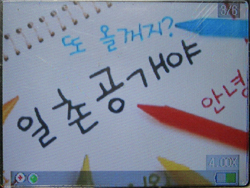 또 올꺼지?
일촌공개야
안녕